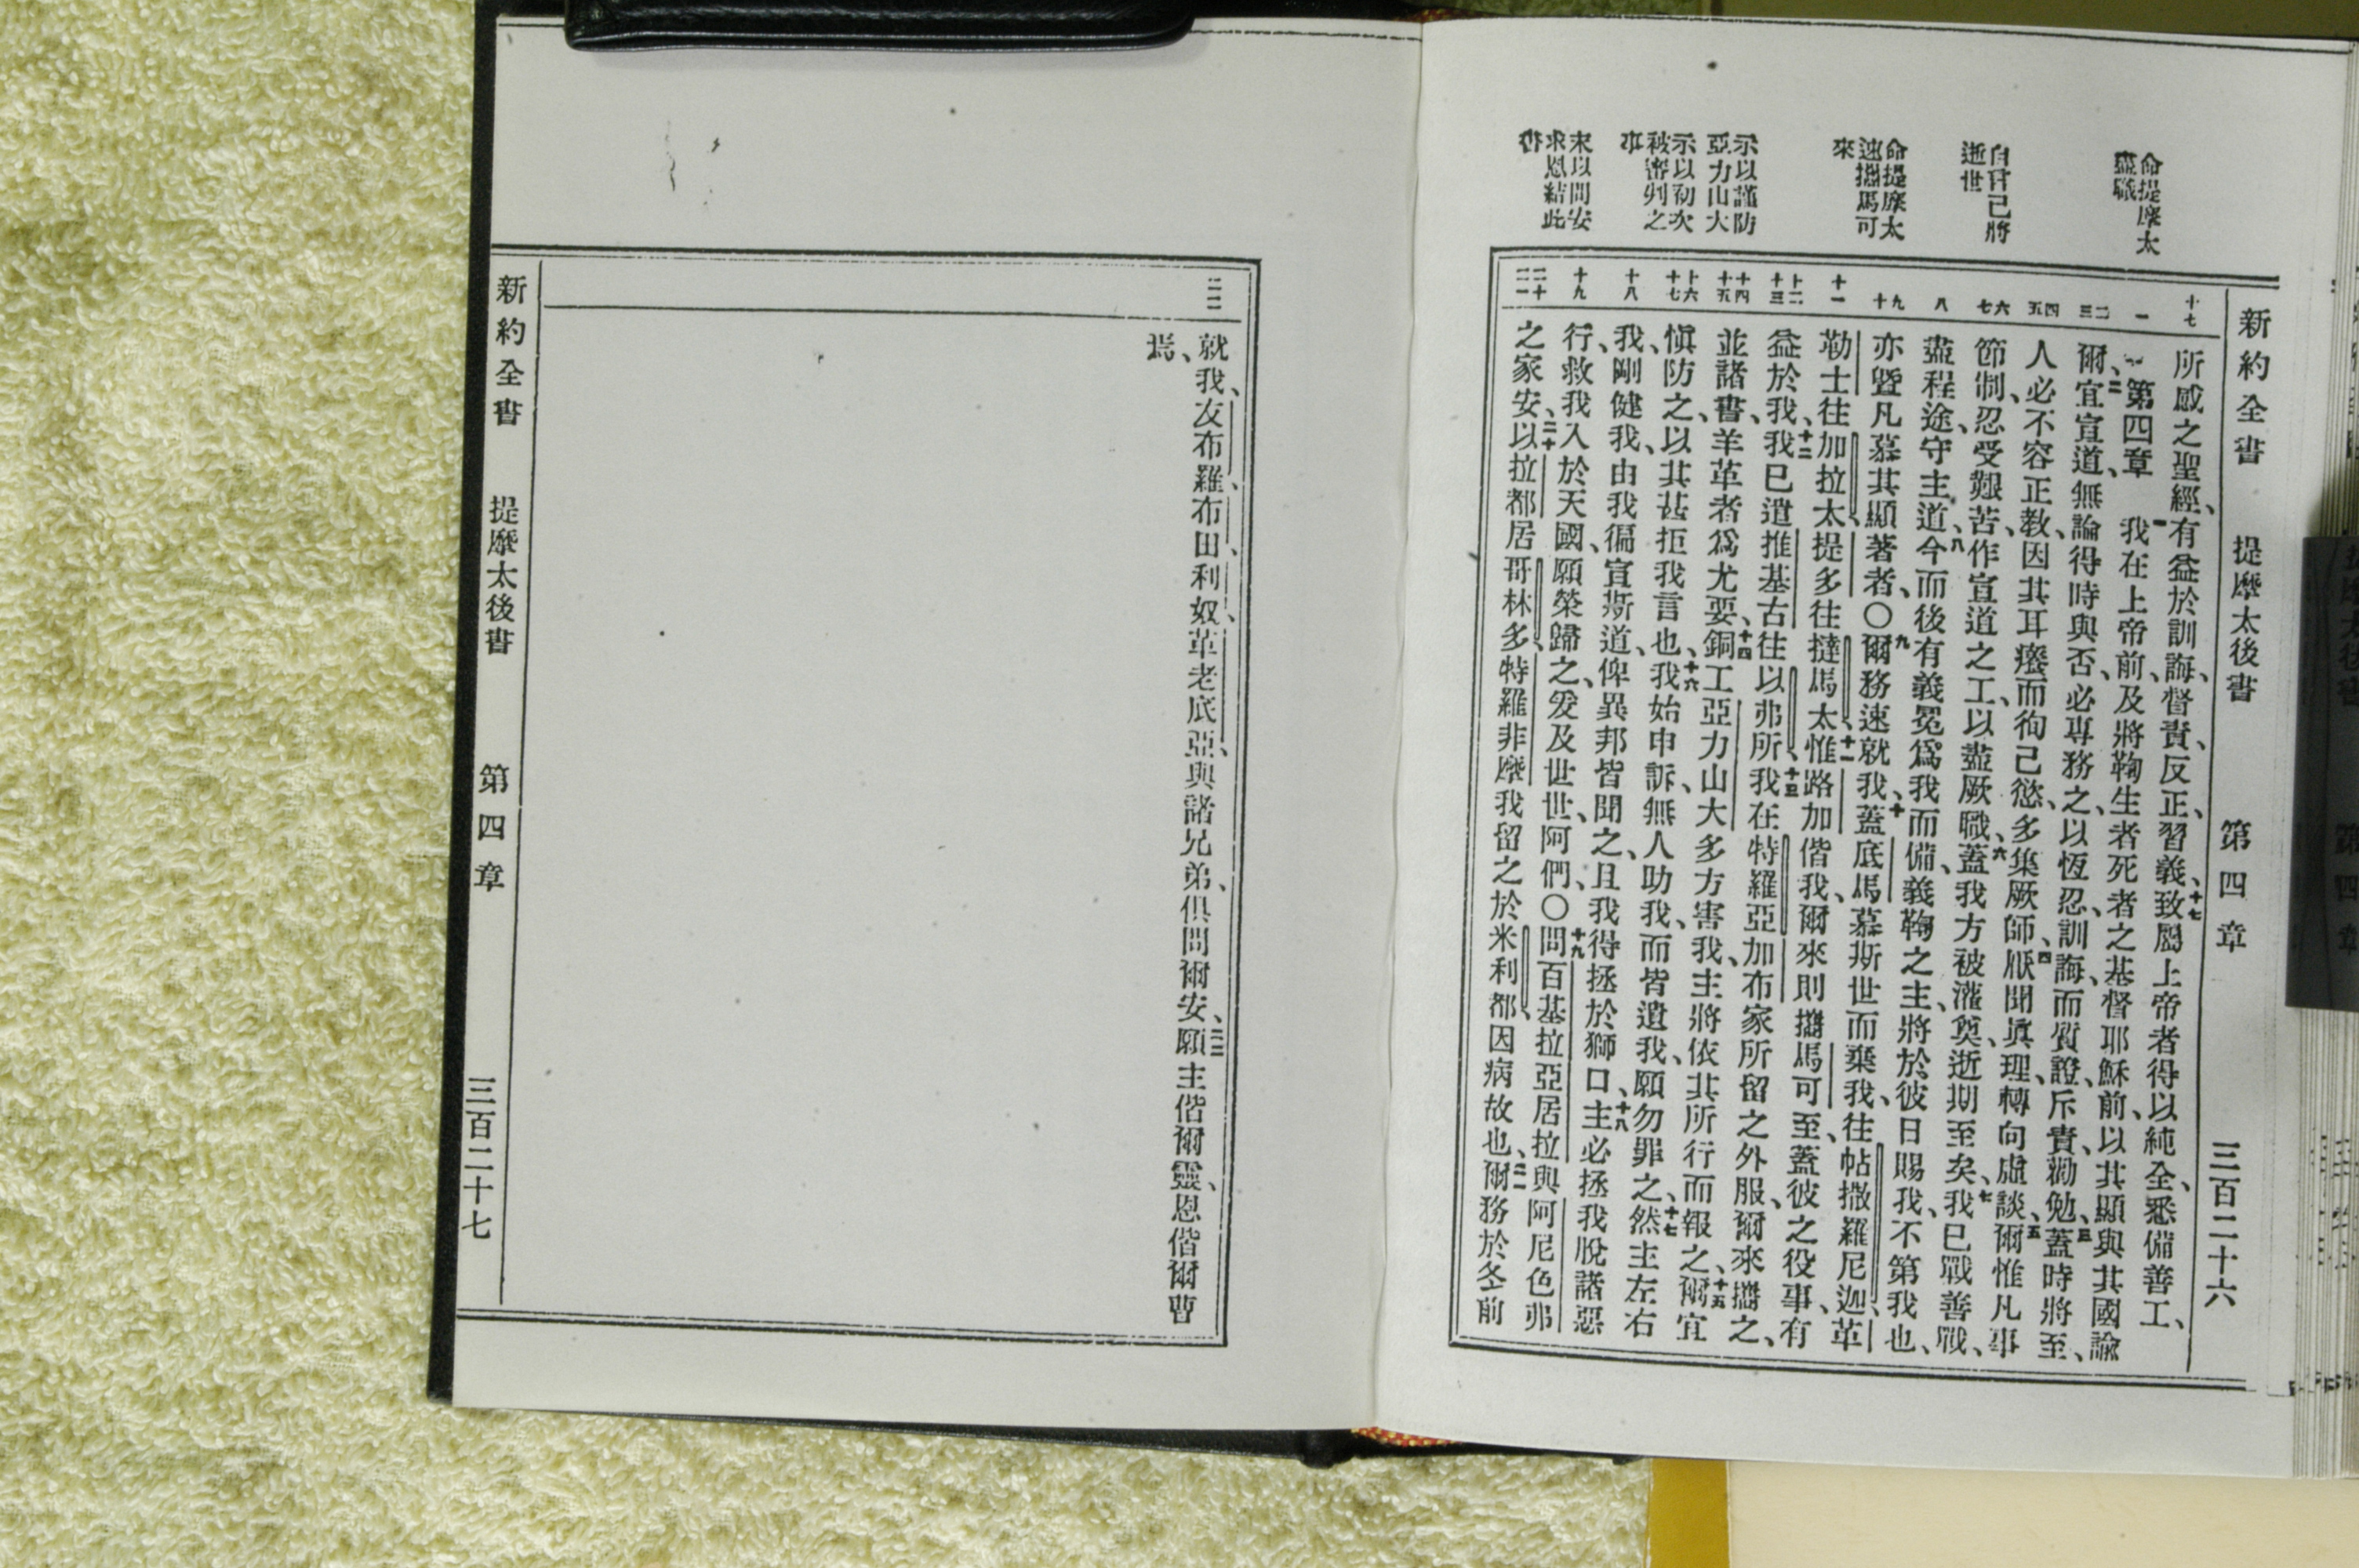 新約全書 提摩太後書 第四章 三百二十六
命提摩太
盡職
自言己將
逝世
命提摩太
速攜馬可
來
示以謹防
亞力山大
示以初次
被審判之
事
末以問安
求恩結此
書
十七
一
二
三
四
五
六
七
八
九
十
十一
十二
十三
十四
十五
十六
十七
十八
十九
二十
二一
所感之聖經、有益於訓誨、督責、反正、習義、十七致屬上帝者得以純全、悉備善工、
第四章 一我在上帝前、及將鞫生者死者之基督耶穌前、以其顯與其國諭
爾、二宜宣道、無論得時與否、必專務之、以恆忍、訓誨、而質證、斥責、勸勉、三蓋時將至、
人必不容正教、因其耳癢而徇己慾、多集厥師、四厭聞眞理、轉向虛談、五爾惟凡事
節制、忍受艱苦、作宣道之工、以盡厥職、六蓋我方被灌奠、逝期至矣、七我已戰善戰、
盡程途、守主道、八今而後有義冕爲我而備、義鞫之主、將於彼日賜我、不第我也、
亦曁凡慕其顯著者、〇九爾務速就我、十蓋底馬慕斯世而棄我、往帖撒羅尼迦、革
勒士往加拉太、提多往撻馬太、十一惟路加偕我、爾來則攜馬可至、蓋彼之役事、有
益於我、十二我已遣推基古往以弗所、十三我在特羅亞加布家所留之外服、爾來攜之、
並諸書、羊革者爲尤要、十四銅工亞力山大多方害我、主將依其所行而報之、十五爾宜
愼防之、以其甚拒我言也、十六我始申訴、無人助我、而皆遺我、願勿罪之、十七然主左右
我、剛健我、由我徧宣斯道、俾異邦皆聞之、且我得拯於獅口、十八主必拯我脫諸惡
行、救我入於天國、願榮歸之、爰及世世、阿們、〇十九問百基拉亞居拉與阿尼色弗
之家安、二十以拉都居哥林多、特羅非摩我留之於米利都、因病故也、二一爾務於冬前
二二
就我、友布羅、布田、利奴、革老底亞、與諸兄弟、俱問爾安、二二願主偕爾靈、恩偕爾曹
焉、
新約全書 提摩太後書 第四章 三百二十七